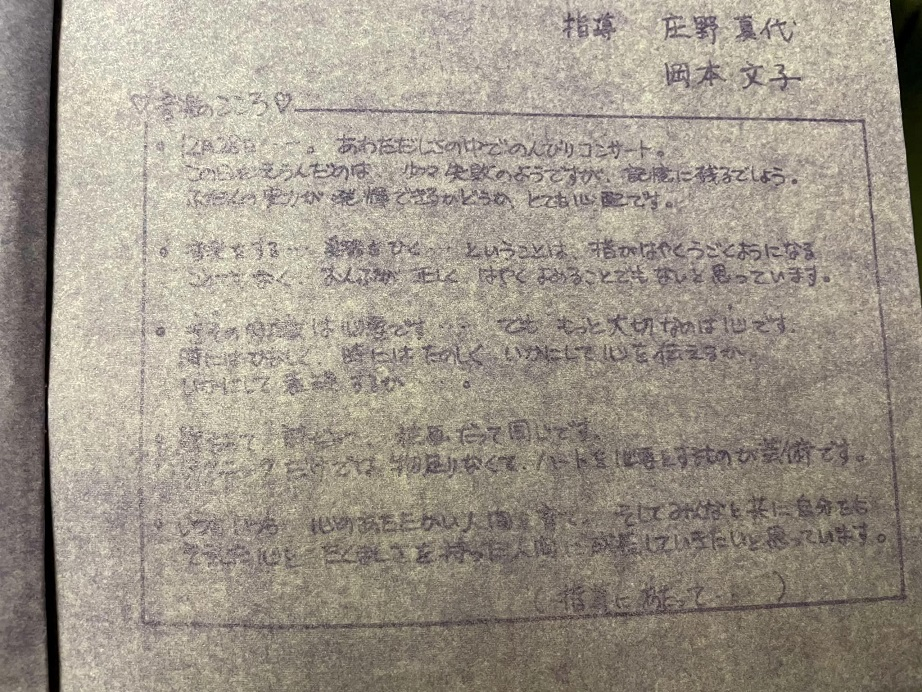 指導 庄野 真代
岡本 文子
♡音楽のこころ♡
• 12月28日…。あわただしさの中でのんびりコンサート。
この日をえらんだのは、少々失敗のようですが、記憶に残るでしょう。
ふだんの実力が発揮できるかどうか、とても心配です。
• 音楽をする… 楽器をひく… ということは、指がはやくうごくようになる
ことでなく、おんぷが正しく はやく よめることでもないと思っています。
• は必要です… でも もっと大切なのは心です。
時には かなしく、時には たのしく、いかにして心を伝えるか、
いかにして表現するか……。
• だって 絵画だって同じです。
テクニックだけでは、物足りなくて、ハートを必要とするのが芸術です。
• 心のあたたかい人間を育て、そしてみんなと共に自分たちも
心と たくましさを持った人間に成長していきたいと思っています。
(指導にあたって…)